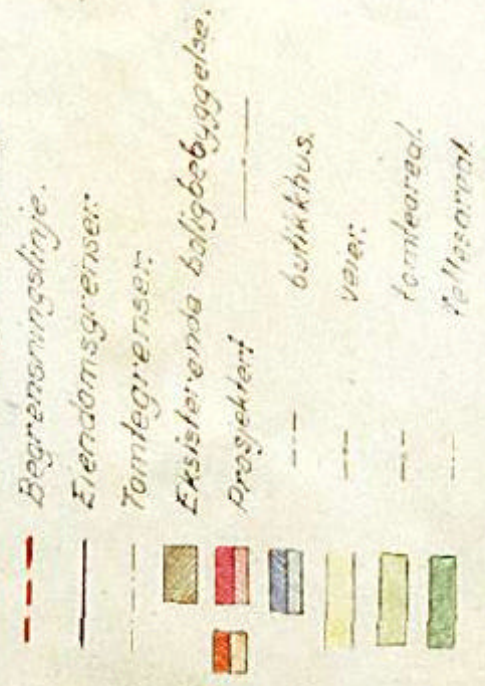 Begrensningslinje.
Eiendomsgrenser.
Tomtegrenser.
Eksisterende boligbebyggelse.
Prosjektert —"—
—"— butikkhus.
—"— veier.
—"— tomteareal.
—"— fellesareal.